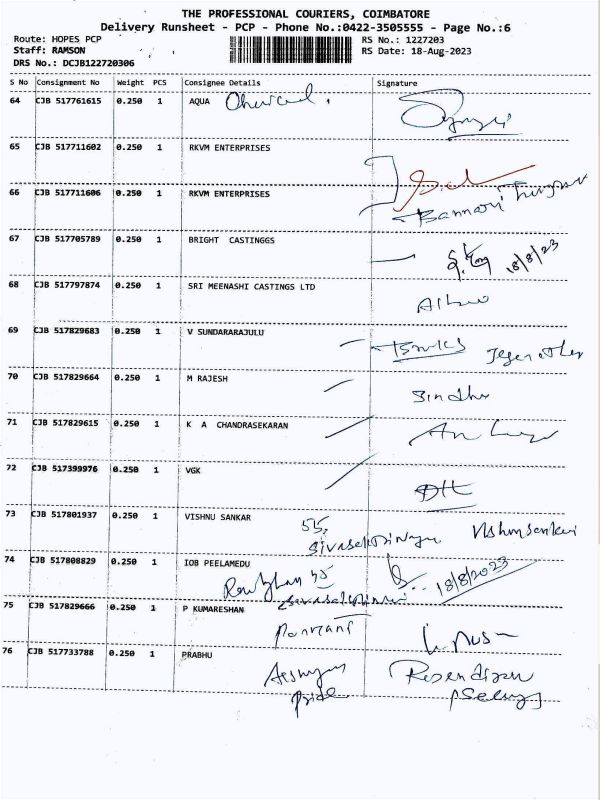 THE PROFESSIONAL COURIERS, COIMBATORE
Delivery Runsheet - PCP - Phone No.:0422-3505555 - Page No.:6
Route: HOPES PCP RS No.: 1227203
Staff: RAMSON RS Date: 18-Aug-2023
DRS No.: DCJB122720306
S No Consignment No Weight PCS Consignee Details Signature
64 CJB 517761615 0.250 1 AQUA
65 CJB 517711602 0.250 1 RKVM ENTERPRISES
66 CJB 517711606 0.250 1 RKVM ENTERPRISES
Bannari
67 CJB 517705789 0.250 1 BRIGHT CASTINGGS
18/8/23
68 CJB 517797874 0.250 1 SRI MEENASHI CASTINGS LTD
69 CJB 517829683 0.250 1 V SUNDARARAJULU
70 CJB 517829664 0.250 1 M RAJESH
Sindhu
71 CJB 517829615 0.250 1 K A CHANDRASEKARAN
72 CJB 517399976 0.250 1 VGK
73 CJB 517801937 0.250 1 VISHNU SANKAR
55,
74 CJB 517808829 0.250 1 IOB PEELAMEDU
18/8/2023
75 CJB 517829666 0.250 1 P KUMARESHAN
76 CJB 517733788 0.250 1 PRABHU
Pride